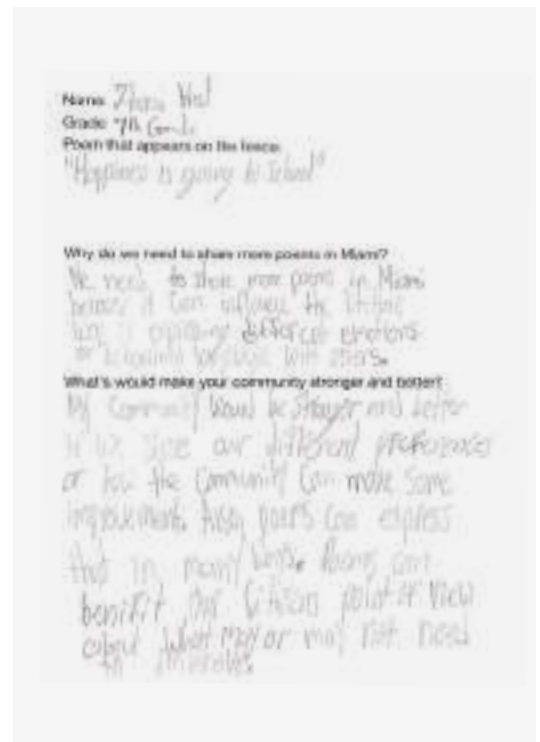 Name:
Grade: 7th Grade
Poem that appears on the fence:
"Happiness is going to School"
Why do we need to share more poems in Miami?
We need to share more poems in Miami
because it can influence the
expressing different emotions
or with others.
What's would make your community stronger and better?
My Community Would be Stronger and better
if we share our different preferences
or how the Community Can make Some
improvement. Also poems can express
that in many ways. Poems can
benifit our Citizen point of View
about What May or may not need
to